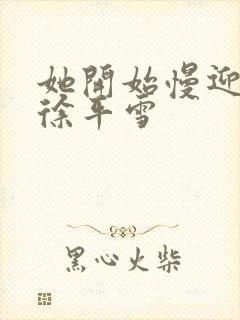 她開始慢迎
徐平雪
黑心火柴